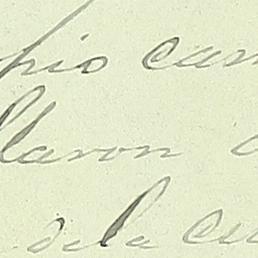 pio can
llaron
de la cu